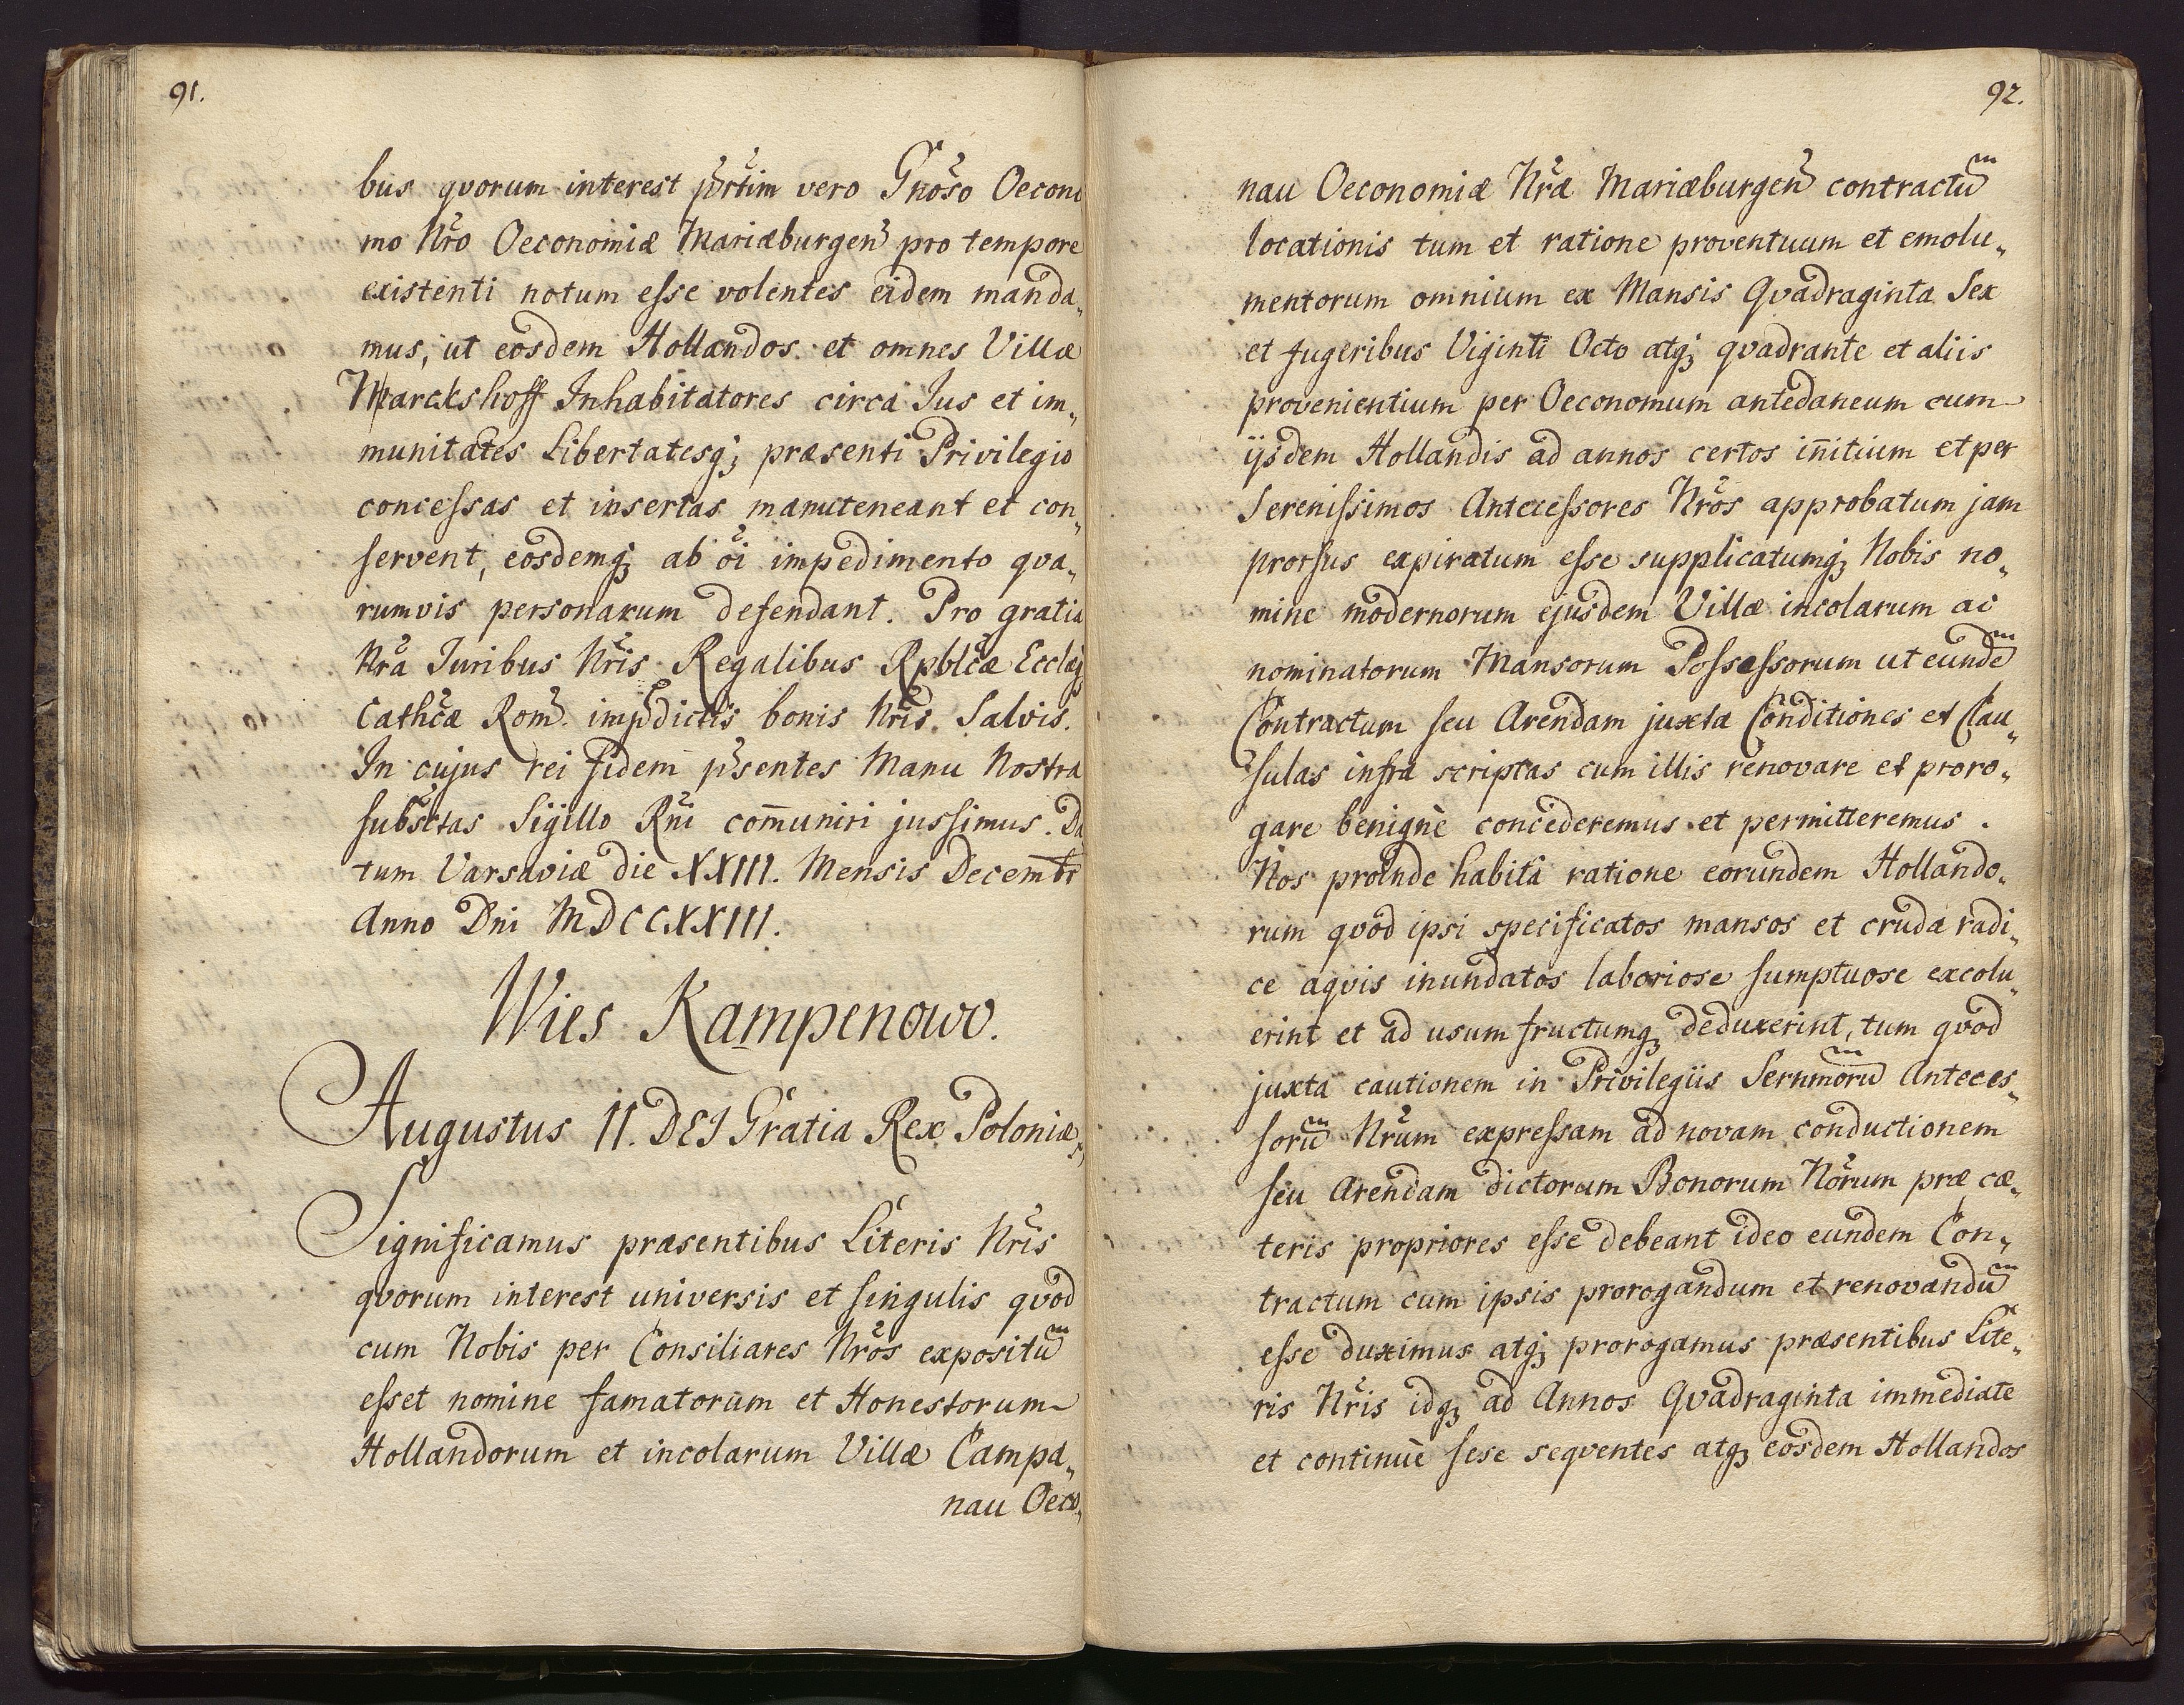 91.
bus qvorum interest pr̃rtim vero Gnõso Oecono
mo Nr̃o Oeconomiæ Mariæburgen̄ pro tempore
existenti notum esse volentes eidem manda„
mus, ut eosdem Hollandos et omnes Villæ
Marckshoff Inhabitatores circa Jus et im„
munitates Libertatesq; præsenti Privilegio
concessas et insertas manuteneant et con„
servent, eosdemq; ab õi impedimento qva„
rumvis personarum defendant. Pro gratia
Nr̃a Juribus Nr̃is Regalibus Rpblc̃æ Ecclæq;
Cathc̃æ Rom̃. imp̃dictis bonis Nr̃is Salvis.
In cujus rei fidem p̃sentes Manu Nostra
subsc̃tas Sigillo Rñi com̃uniri jussimus. Da
tum Varsaviæ die XXIII. Mensis Decembr
Anno Dni MDCCXXIII.
Wies Kampenowo.
Augustus II. DEI Gratia Rex Poloniæ
Significamus præsentibus Literis Nr̃is
qvorum interest universis et singulis qvod
cum Nobis per Consiliares Nr̃os expositũ
esset nomine famatorum et Honestorum
Hollandorum et incolarum Villæ Campa„
nau Oeco„
92.
nau Oeconomiæ Nr̃æ Mariæburgen̄ contractũ
locationis tum et ratione proventuum et emolu„
mentorum omnium ex Mansis Qvadraginta Sex
et Jugeribus Viginti Octo atq; qvadrante et aliis
provenientium per Oeconomum antedaneum cum
ijsdem Hollandis ad annos certos iñitium et per
Serenissimos Antecessores Nr̃os approbatum jam
prorsus expiratum esse supplicatumq; Nobis no„
mine modernorum ejusdem Villæ incolarum ac
nominatorum Mansorum Possessorum ut eundẽ
Contractum seu Arendam juxta Conditiones et Clau„
sulas infra scriptas cum illis renovare et proro„
gare benignè concederemus et permitteremus.
Nos proinde habitâ ratione eorundem Hollando„
rum qvod ipsi specificatos mansos et cruda radi„
ce aqvis inundatos laboriose sumptuose excolu„
erint et ad usum fructumq; deduxerint, tum qvod
juxta cautionem in Privilegiis Sernmorũ Anteces„
sorũ Nr̃um expressam ad novam conductionem
seu Arendam dictorum Bonorum Nõrum præ cæ„
teris propriores esse debeant ideo eundem Con„
tractum cum ipsis prorogandum et renovandũ
esse duximus atq; prorogamus præsentibus Lite„
ris Nr̃is idq; ad Annos Qvadraginta immediate
et continuè sese seqventes atq; eosdem Hollandos